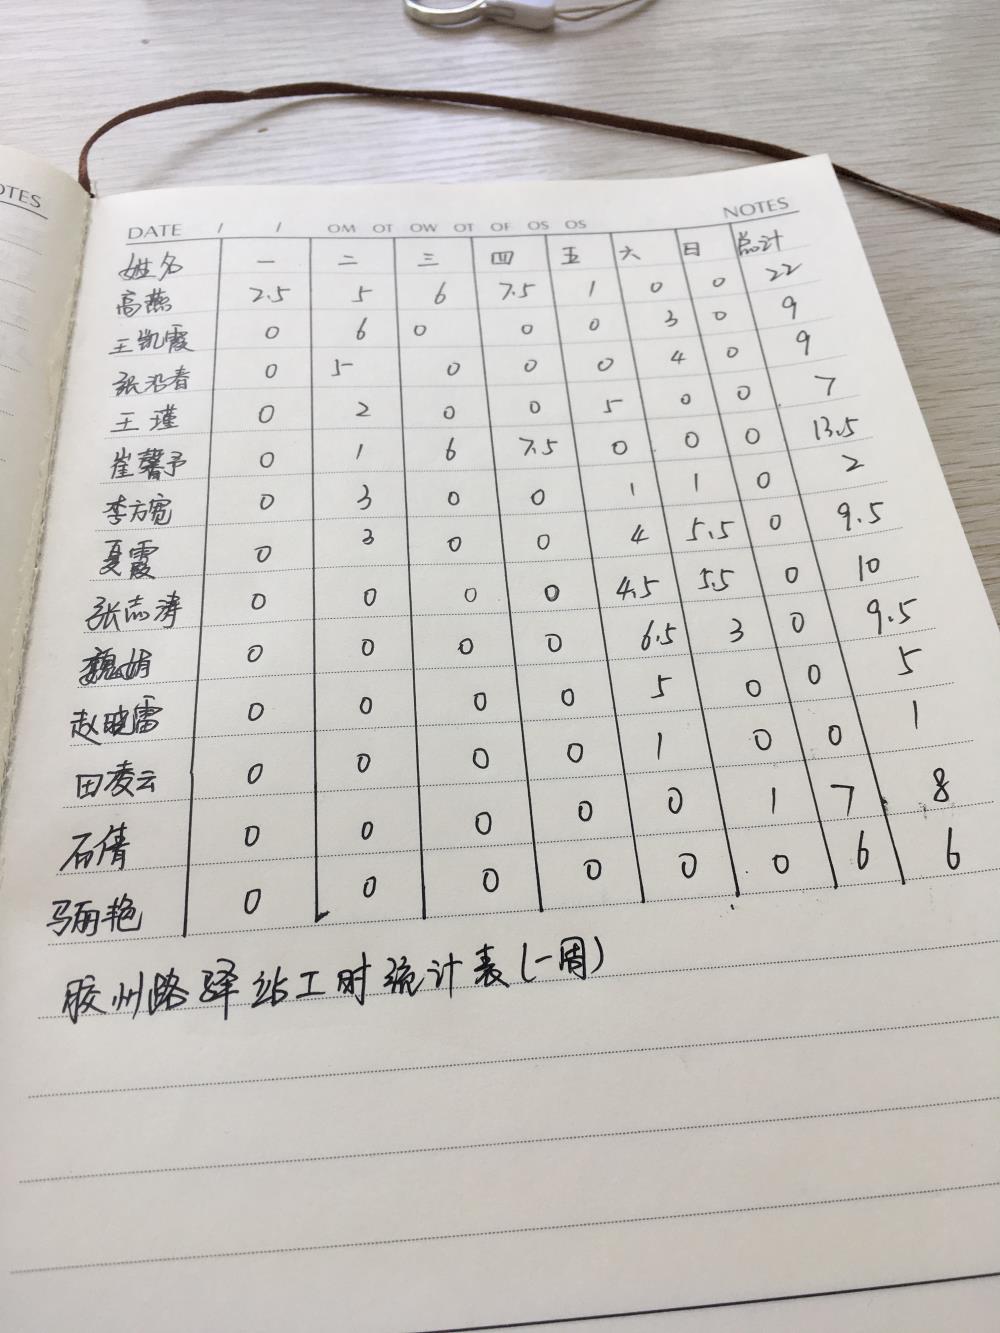 OTES
DATE / / OM OT OW OT OF OS OS NOTES
姓名 一 二 三 四 五 六 日 总计
高燕 2.5 5 6 7.5 1 0 0 22
王凯霞 0 6 0 0 0 3 0 9
张沿春 0 5 0 0 0 4 0 9
王瑾 0 2 0 0 5 0 0 7
崔馨予 0 1 6 7.5 0 0 0 13.5
李方宽 0 3 0 0 1 1 0 2
夏霞 0 3 0 0 4 5.5 0 9.5
张志涛 0 0 0 0 4.5 5.5 0 10
魏娟 0 0 0 0 6.5 3 0 9.5
赵晓雷 0 0 0 0 5 0 0 5
田凌云 0 0 0 0 1 0 0 1
石倩 0 0 0 0 0 1 7 8
马丽艳 0 0 0 0 0 0 6 6
胶州路驿站工时统计表(一周)